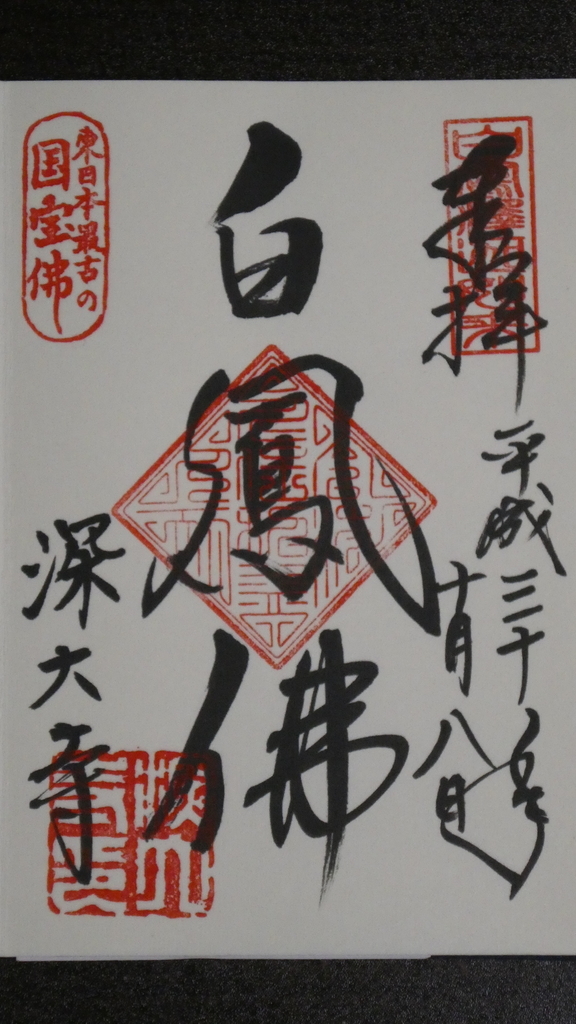 奉拝
平成三十年
十月八日
白鳳佛
東日本最古の
国宝佛
深大寺